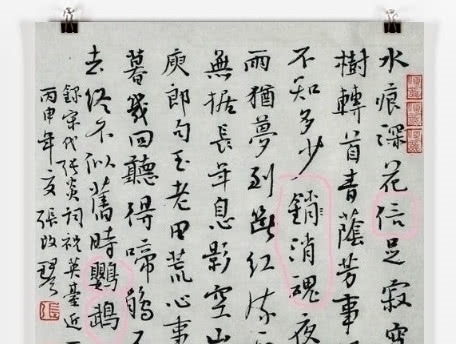 水痕深花信足寂寞
樹轉首青蔭芳事
不知多少銷消魂夜
雨猶夢到斷紅流
無據長年息影空山
庾郎句玉老田荒心事
暮幾回聽得啼鵑不
去終不似舊時鸚鵡
錄宋代張炎詞祝英臺近
丙申年夏張改琴